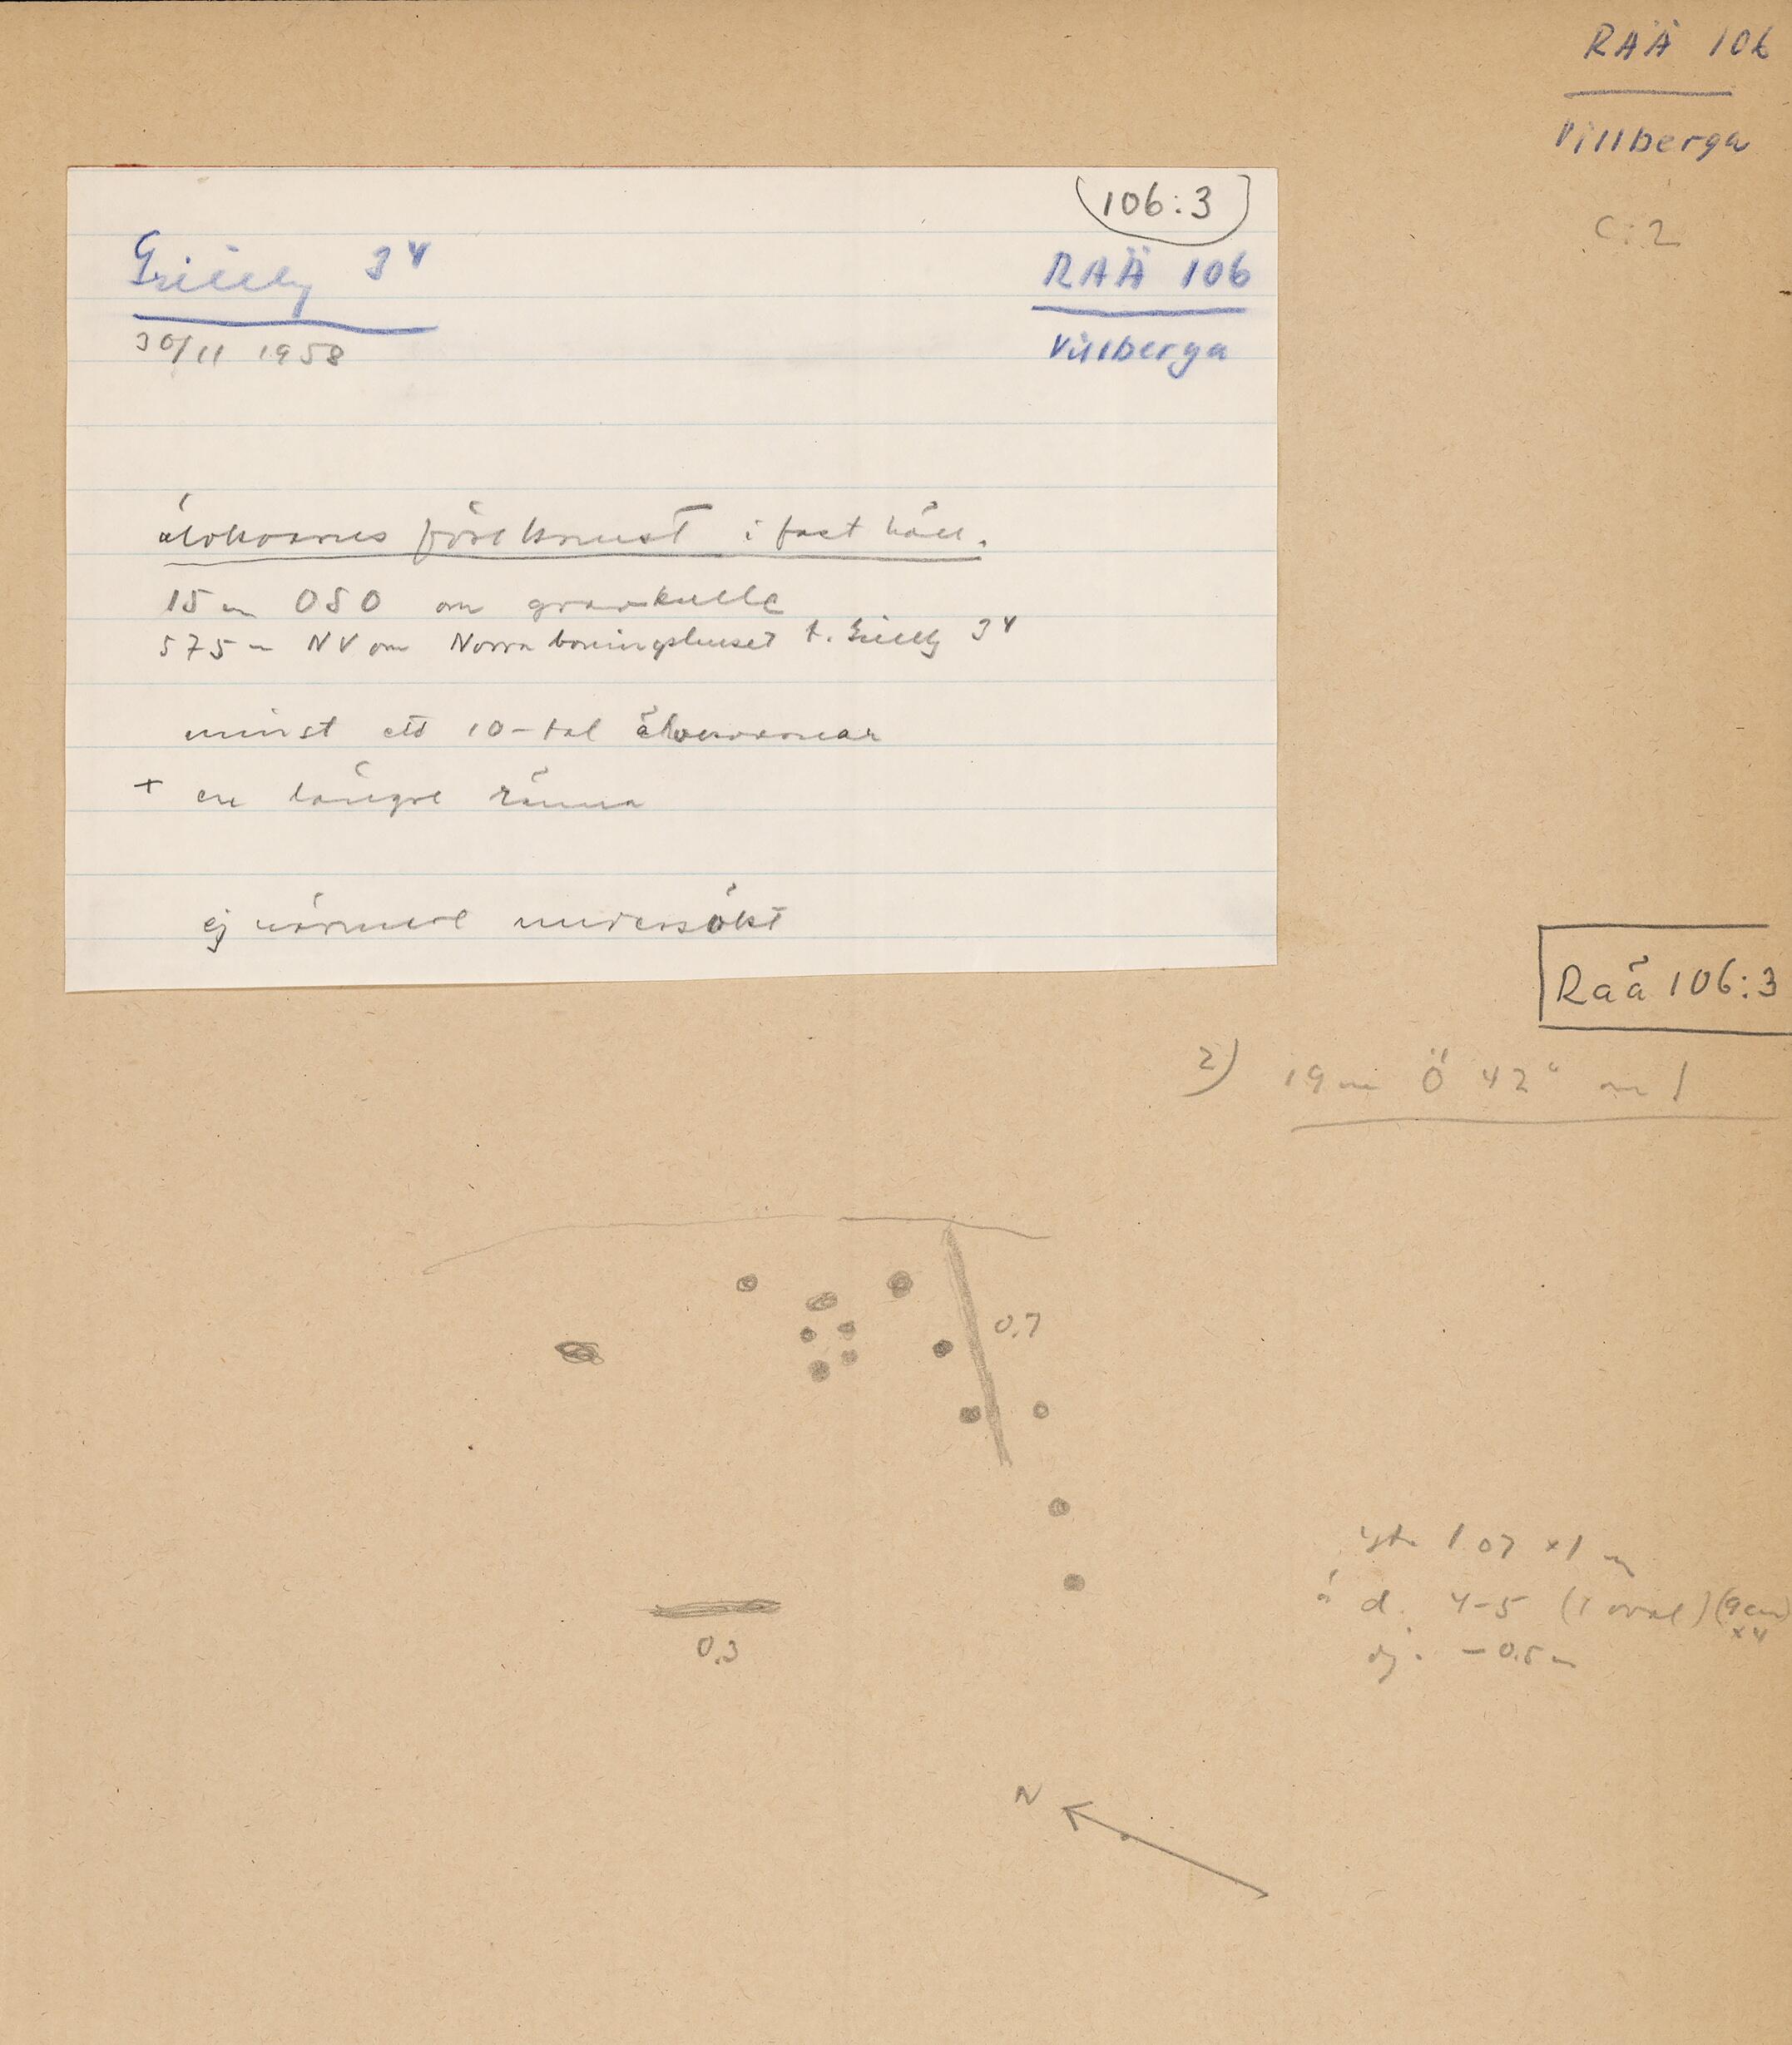 RAÄ 106
Villberga
C:2
106:3
Grillby 3⁴
RAÄ 106
30/11 1958
Villberga
i fast häll.
15 m OSO om gravkulle
575 m NV om Norra boningshuset t. Grillby 3⁴
minst ett 10-tal
+ en längre ränna
ej närmare undersökt
Raä 106:3
2) 19 m Ö 42° om 1
0.7
0.3
yta 1.07 x 1 m
d. 4-5 (1 oval) (9 cm
x 4
dj. - 0.5
N